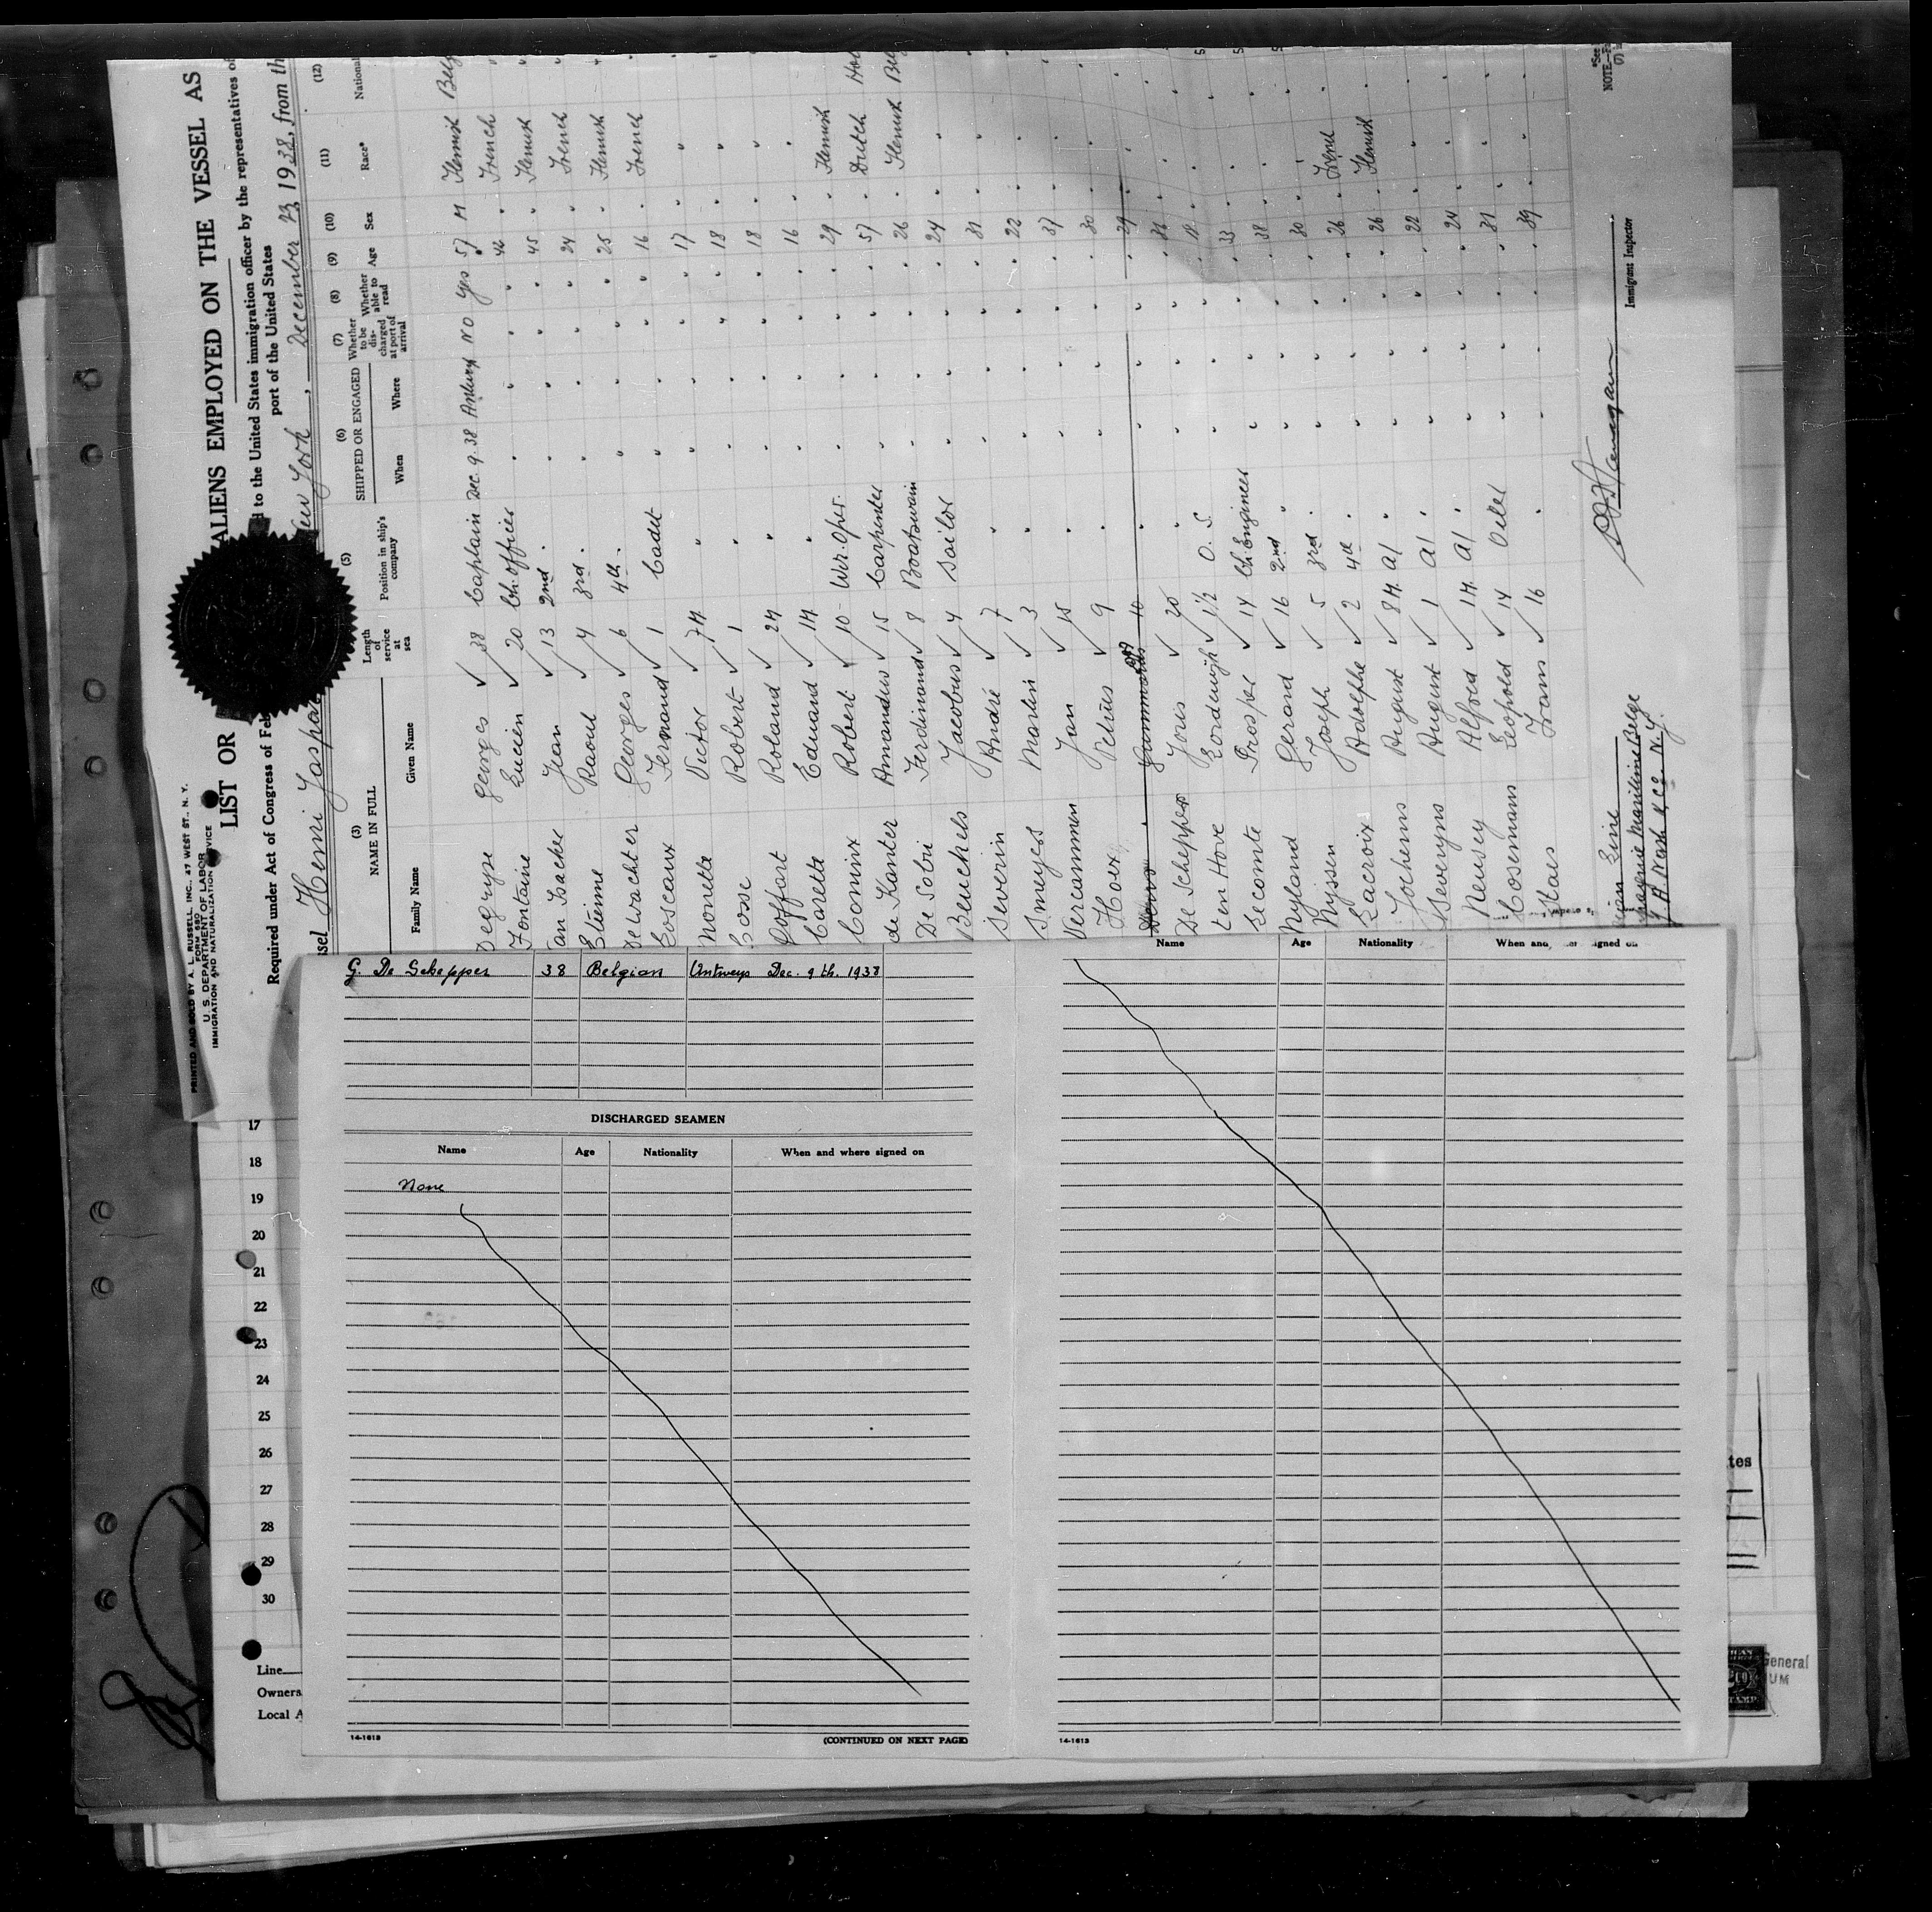 PRINTED AND SOLD BY A. L. RUSSELL, INC., 27 WEST ST., N. Y.
FORM 680
U. S. DEPARTMENT OF LABOR
IMMIGRATION AND NATURALIZATION SERVICE
LIST OR ALIENS EMPLOYED ON THE VESSEL AS
Required under Act of Congress of Feb d to the United States immigration officer by the representatives of
port of the United States
ssel Henri Jaspar ew York, December 23, 1938, from th
(3) (5) (6) (7) (8) (9) (10) (11) (12)
NAME IN FULL Length of service at sea Position in ship's company SHIPPED OR ENGAGED Whether to be discharged at port of arrival Whether able to read Age Sex Race* National
Family Name Given Name When Where
Degryse Georges 38 Captain Dec. 9. 38 Antwerp No Yes 57 M Flemish Belg
Fontaine Lucien 20 Ch. officer " " " " 42 " French "
an Isacker Jean 13 2nd " " " " " 45 " Flemish "
Etienne Raoul 4 3rd " " " " " 24 " French "
Dewachter Georges 6 4th " " " " " 25 " Flemish "
Losceaux Fernand 1 Cadet " " " " 16 " French "
Nonette Victor 7M " " " " " 17 " " "
Cosse Robert 1 " " " " " 18 " " "
Roland 2M " " " " " 18 " " "
Carette Eduard 1M " " " " " 16 " " "
Cominx Robert 10 Wir. Oper. " " " " 29 " Flemish "
de Kanter Amandus 15 Carpenter " " " " 57 " Dutch Hol
De Sobri Ferdinand 8 Boatswain " " " " 26 " Flemish Bel
Beuckels Jacobus 4 Sailor " " " " 24 " " "
Severin André 7 " " " " " 31 " " "
Smeyes Martin 3 " " " " " 22 " " "
Vercammen Jan 15 " " " " " 37 " " "
Hoex Petrus 9 " " " " " 30 " " "
10 " " " " " 29 " " "
De Schepper Joris 20 " " " " " 38 " " "
ten Hove 1½ O. S. " " " " 18 " " "
Lecomte Prosper 14 Ch. Engineer " " " " 33 " " "
Nyland Gerard 16 2nd " " " " " 38 " " "
Nyssen Joseph 5 3rd " " " " " 30 " " "
Lacroix Adolphe 2 4th " " " " " 26 " French "
Jochems August 8M. A/ " " " " " 26 " Flemish "
Severyns August 1 A/ " " " " " 22 " " "
Neusey Alfred 1M. A/ " " " " " 24 " " "
Cosemans Leopold 14 Oiler " " " " 31 " " "
Maes Frans 16 " " " " " 39 " " "
Line
Maritime Belge
N.Y.
Immigrant Inspector
*See
NOTE.—Fa
(7) i
G. De Schepper 38 Belgian Antwerp Dec. 9 th. 1938
DISCHARGED SEAMEN
Name Age Nationality When and where signed on
None
14-1613 (CONTINUED ON NEXT PAGE)
Name Age Nationality When and signed on
14-1613
17
18
19
20
21
22
23
24
25
26
27
28
29
30
Line
Owners
Local A
tes
General
UM